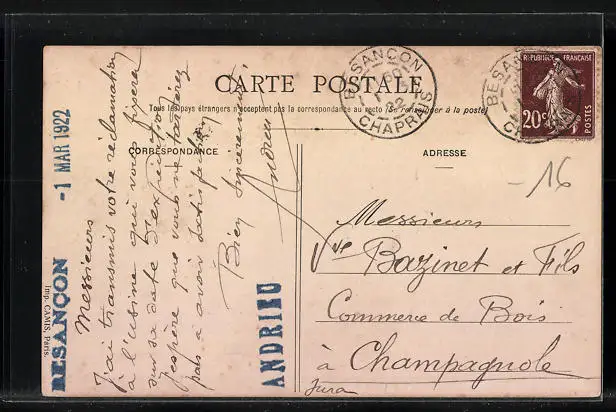 CARTE POSTALE
Tous les pays étrangers n'acceptent pas la correspondance au recto (Se renseigner à la poste)
CORRESPONDANCE
ADRESSE
Messieurs
J'ai transmis votre réclamation
à l'usine qui vous fixera
sur sa date d'expédition
J'espère que vous ne tarderez
pas à avoir satisfaction
Bien sincèrement
Andrieu
ANDRIEU
BESANÇON
-1 MAR 1922
Imp. CAMIS, Paris.
BESANÇON
22
CHAPRAIS
BESAN
RÉPUBLIQUE FRANÇAISE
20c
POSTES
-16
Messieurs
Vve Bazinet et Fils
Commerce de Bois
à Champagnole
Jura